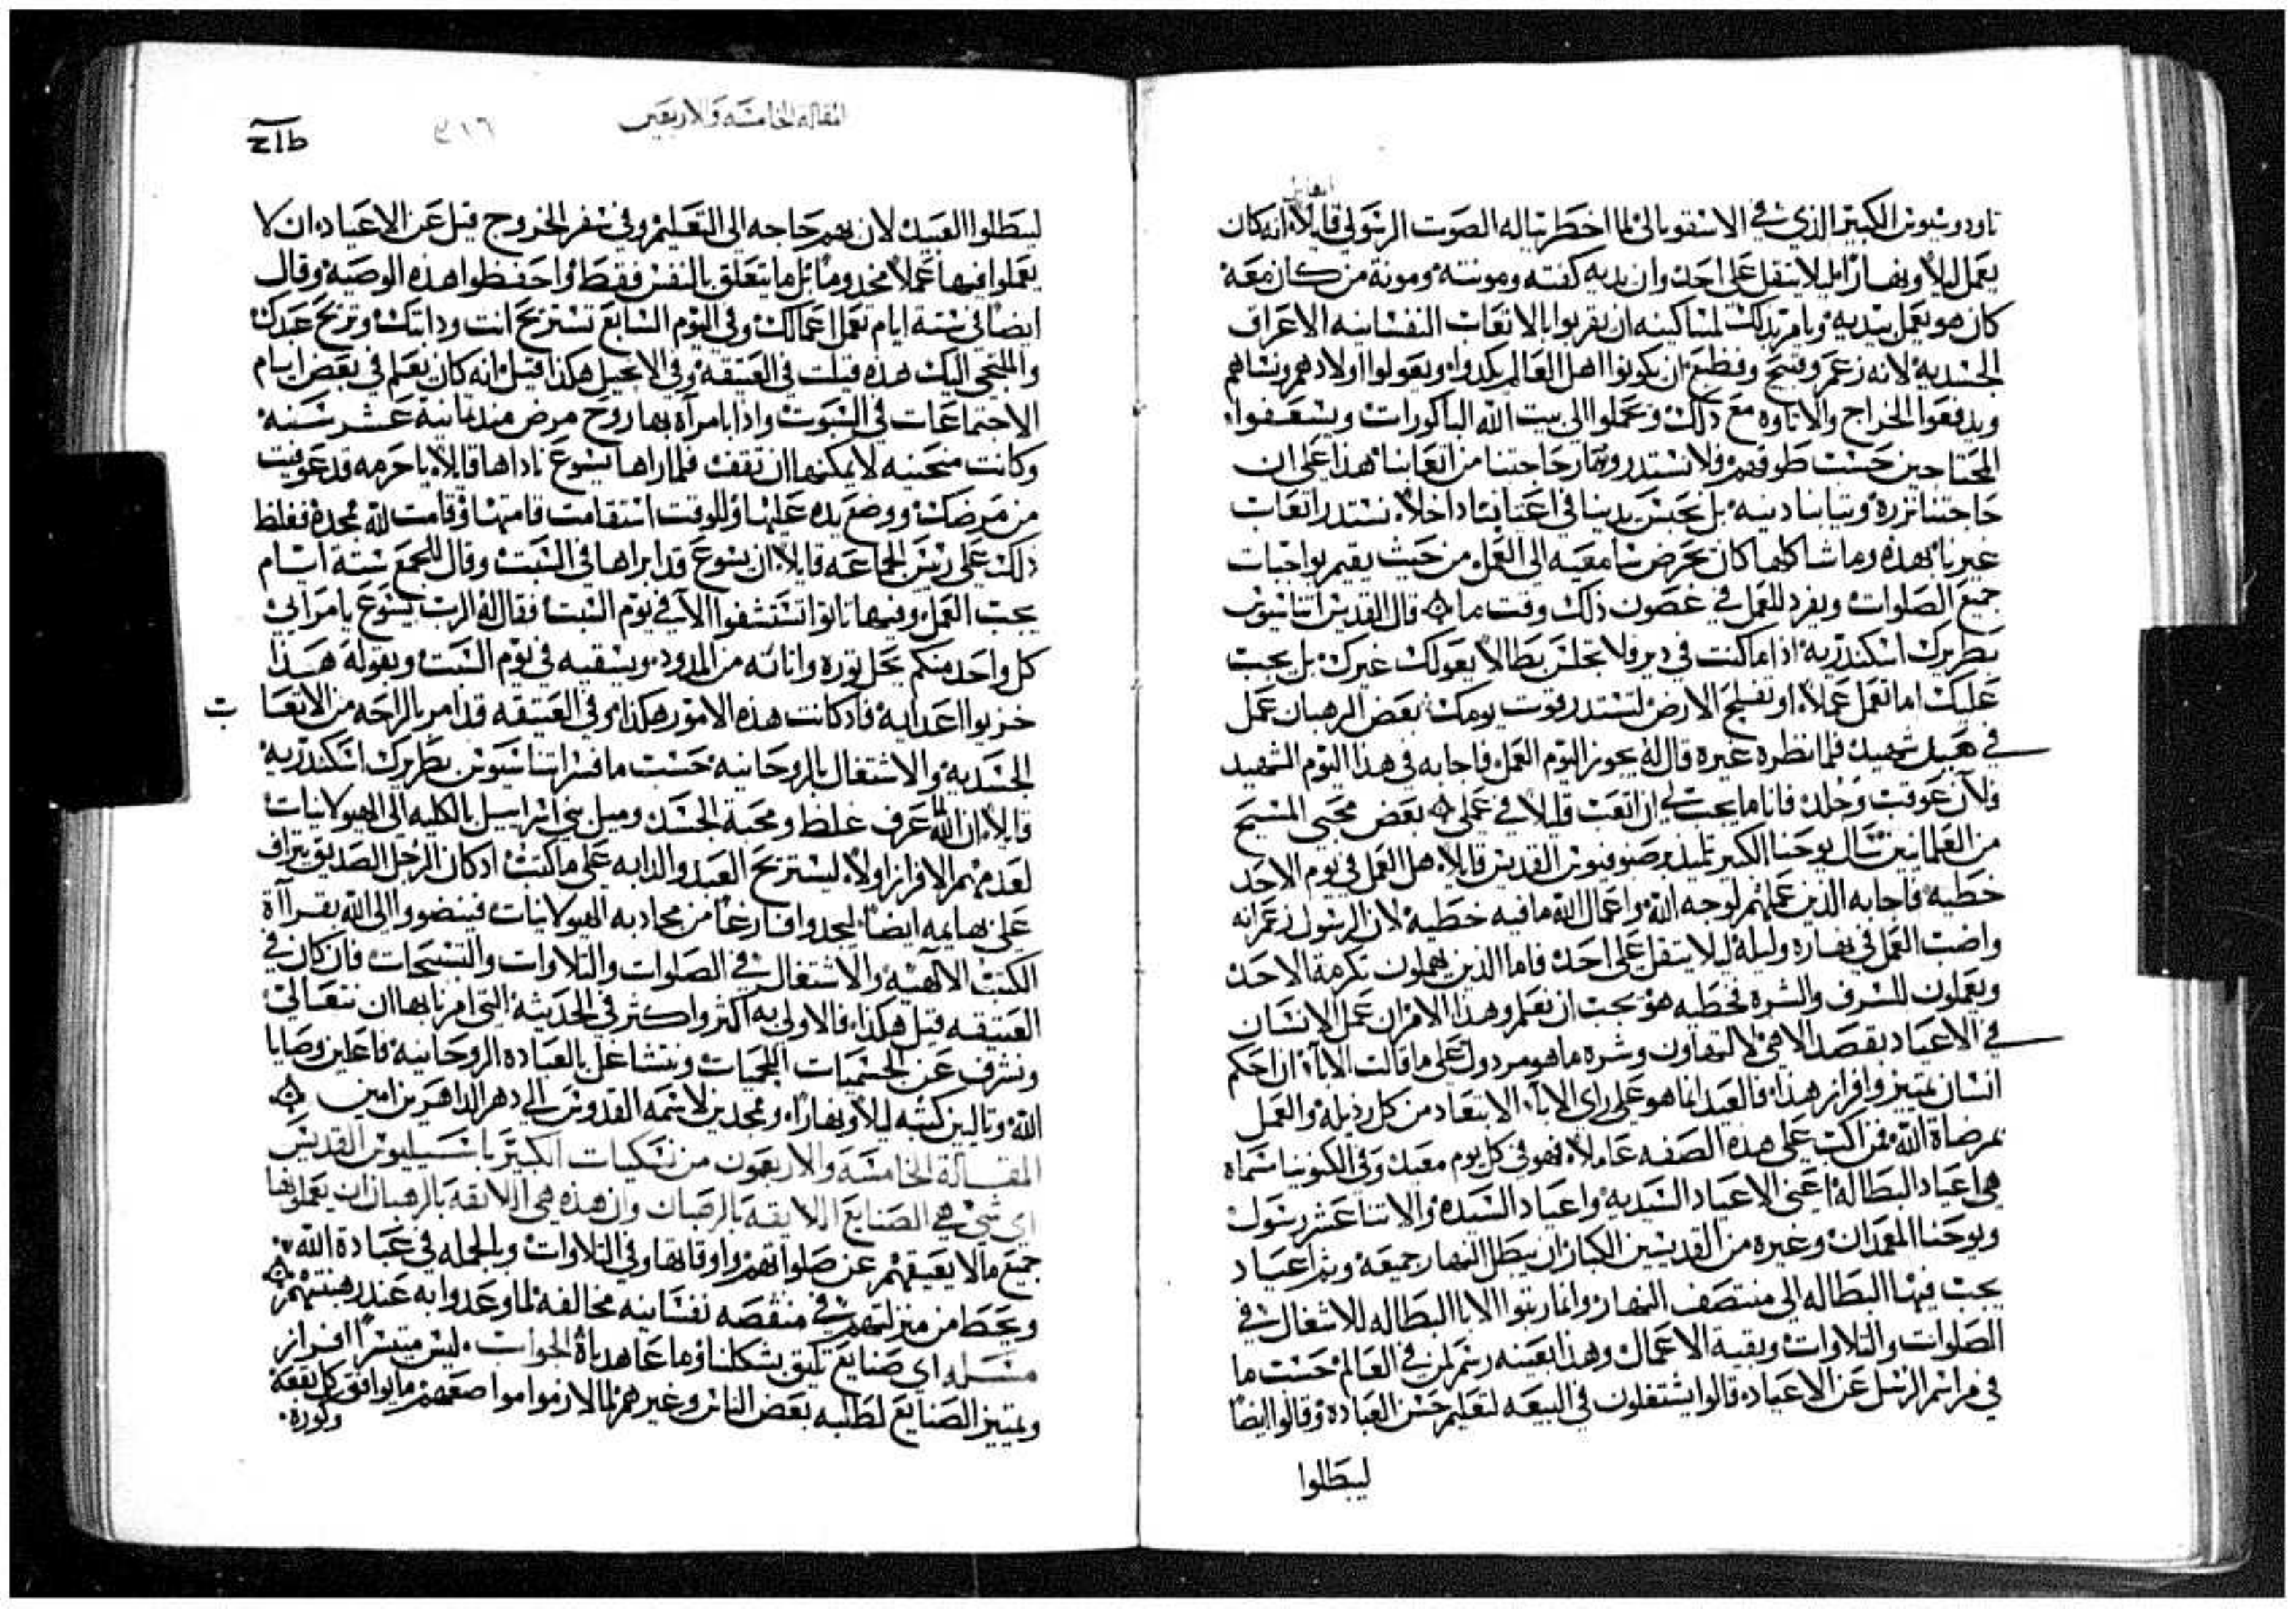 تاودوسيوس الكبير الذي في الاسقوبالي لما اخطر بباله الصوت الرسولي قايلاً انه كان
يعمل ليلاً ونهاراً ليلا يثقل على احد وان يديه كفته ومونته ومونة من كان معه
كان هو يعمل بيديه ويامر بذلك لمساكينه ان يقرنوا بالاتعاب النفسانيه الاعراق
الجسديه لانه زعم وقبيح وفظيع ان يكونوا اهل العالم يكدوا ويعولوا اولادهم ونساهم
ويدفعوا الخراج والاتاوه مع ذلك ويحملوا الى بيت الله الباكورات ويسعفوا
المحتاجين حسب طوقهم ولا نستدر وتمار حاجتنا من اتعابنا هذا على ان
حاجتنا نزرة وثيابنا دنيه بل نحبس يدينا في اعبابنا داخلاً نستدر اتعاب
غيرنا بهذه وما شاكلها كان يحرض سامعيه الى العمل من حيث يقيم بواجبات
جميع الصلوات ويفرد للعمل في غصون ذلك وقت ما قال القديس اتناسيوس
بطريرك اسكندريه اذا ما كنت في دير فلا تجلس بطالا يعولك غيرك بل يجب
عليك اما تعمل عملاً او تفلح الارض لتستدر قوت يومك بعض الرهبان عمل
في عيد شهيد فلما نظره غيره قال له يجوز اليوم العمل فاجابه في هذا اليوم الشهيد
فلان عوقب وجلد فانا ما يجب لي ان اتعب قليلا في عملي بعض محبي المسيح
من العلمانيين سال يوحنا الكبير تلميذ وصنوفيوس القديس قايلا هل العمل في يوم الاحد
خطيه فاجابه الذين عملهم لوجه الله واعمال الله ما فيه خطيه لان الرسول زعم انه
واضب العمل في نهاره وليله ليلا يثقل على احد فاما الذين يهملون تكرمة الاحد
ويعملون للسرف والشره فخطيه هو يجب ان نعلم وهذا الامر ان عمل الانسان
في الاعياد بقصد الاهي لا لتهاون وشره ما هو مردول على ما قالت الابآ ان احكم
انسان بتميز وافراز هذا فالعيد انما هو على راي الابآ الابتعاد من كل رذيله والعمل
بمرضاة الله فمن اكب على هذه الصفه عاملاً فهو في كل يوم معيد وفي الكنونيا مسماه
هي اعياد البطاله اعني الاعياد السيديه واعياد السيده والاتناعشر رسول
ويوحنا المعمدان وغيره من القديسين الكبار ان يبطل النهار جميعه وثم اعياد
يجب فيها البطاله الى منتصف النهار وانما رتبوا الابا البطاله للاشغال في
الصلوات والتلاوات وبقية الاعمال وهذا بعينه رسم لمن في العالم حسب ما
في مراسم الرسل عن الاعياد قالوا يشتغلون في البيعه لتعليم حسن العباده وقالوا ايضا
ليبطلوا
المقاله الخامسه والاربعين
٣١٦
ليبطلوا العبيد لان بهم حاجه الى التعليم وفي سفر الخروج قيل عن الاعياد ان لا
يعملوا فيها عملا مخدوما بل ما يتعلق بالنفس فقط واحفظوا هذه الوصيه وقال
ايضا في ستة ايام تعمل اعمالك وفي اليوم السابع تستريح انت ودابتك وتريح عبدك
والملتجي اليك هذه قيلت في العتيقه وفي الانجيل هكذا قيل انه كان يعلم في بعض ايام
الاجتماعات في السبوت واذا بامرآه بها روح مرض منذ تمانية عشر سنه
وكانت منحنيه لا يمكنها ان تقف فلما راها يسوع ناداها قايلا يا حرمه قد عوفيت
من مرضك ووضع يده عليها وللوقت استقامت قامتها وقامت لله ممجدة فغلظ
ذلك على ريس الجماعه قايلا ان يسوع قد ابراها في السبت وقال للجمع ستة ايام
يجب العمل وفيها تاتوا تستشفوا الا في يوم السبت فقال له الرب يسوع يا مرآيي
كل واحد منكم يحل ثوره واتانه من المدود ويسقيه في يوم السبت وبقوله هذا
خزيوا اعدايه فاد كانت هذه الامور هكذا وفي العتيقه قد امر بالراحه من الاتعاب
الجسديه والاشتغال بالروحانيه حسب ما فسر اتناسيوس بطريرك اسكندريه
قايلا ان الله لما عرف غلظ ومحبة الجسد وميل بني اسراييل بالكليه الى الهيولانيات
لعدمهم الافراز اولا ليستريح العبد والدابه على ما كتب اد كان الرجل الصديق يتراف
على بهايمه ايضا ليجدوا فارغا من مجادبه الهيولانيات فينضووا الى الله بقراآة
الكتب الالهيه والاشتغال في الصلوات والتلاوات والتسبيحات فان كان في
العتيقه قيل هكذا فالاولى به اكثر واكثر في الحديثه التي امرنا بها ان نتعالى
ونشرف عن الجسميات اللحميات ونتشاغل بالعباده الروحانيه فاعلين وصايا
الله وتالين كتبه ليلا ونهارا وممجدين لاسمه القدوس الى دهر الداهرين امين
المقالة الخامسة والاربعون من نسكيات الكبير باسيليوس القديس
اي شي هي الصنايع اللايقه بالرهبان وان هذه هي اللايقه بالرهبان ان يعملوها
جميع ما لا يعيقهم عن صلواتهم واوقاتها وفي التلاوات وبالجمله في عبادة الله
ويحط من منزلتهم في منقصه نفسانيه مخالفه لما وعدوا به عند رهبنتهم
مسله اي صنايع تليق بشكلنا وما عاهدناه الجواب ليس متيسرا افراز
وتمييز الصنايع لطلبه بعض الناس وغيرهم لما لازموا مواضعهم ما يوافق كل بقعة
وكورة